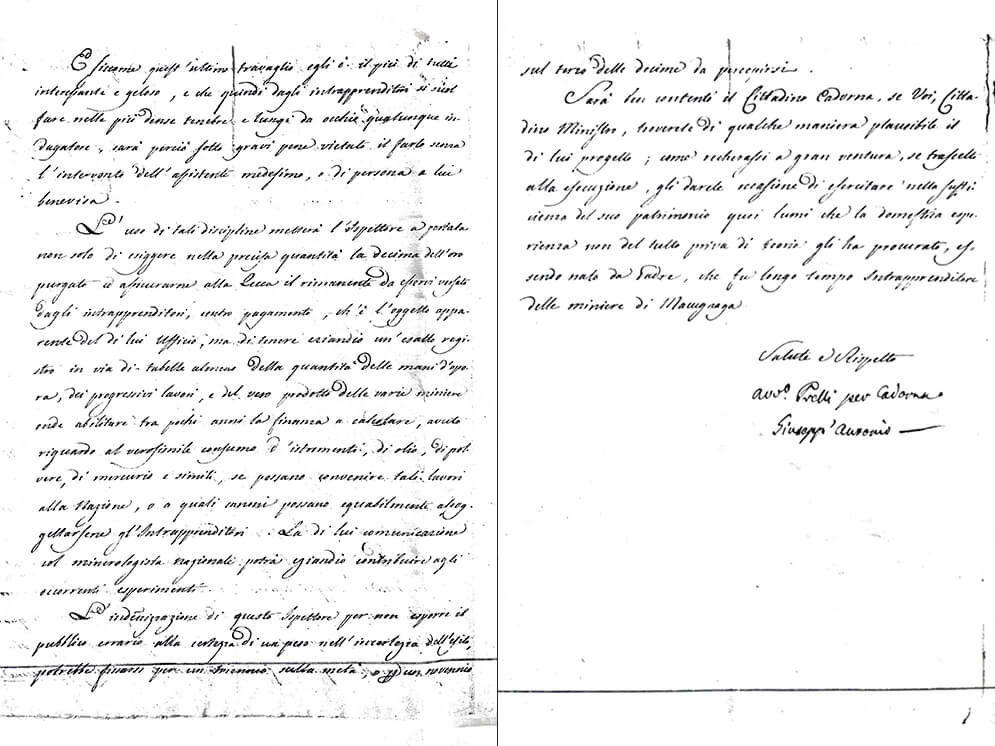 E siccome quest'ultimo travaglio egli è il più di tutti
interessante e geloso, e che quindi dagli intrapprenditori si suol
fare nelle più dense tenebre e lungi da occhio qualunque in-
dagatore, sarà perciò sotto gravi pene vietato il farlo senza
l'intervento dell'assistente medesimo, o di persona a lui
benevisa.
L'uso di tali discipline metterà l'Ispettore a portata
non solo di esiggere nella precisa quantità la decima dell'oro
purgato ed assicurarne alla Zecca il rimanente da esservi versato
dagli intrapprenditori, contro pagamento, ch'è l'oggetto appa-
rente del di lui Ufficio, ma di tenere eziandio un'esatto regi-
stro in via di tabelle almeno della quantità delle mani d'opo-
ra, dei progressivi lavori, e del vero prodotto delle varie miniere
onde abilitare tra pochi anni la finanza a calcolare, avuto
riguardo al verosimile consumo d'istromenti, di olio, di pol-
vere, di mercurio e simili, se possano convenire tali lavori
alla Nazione, o a quali canoni possano equabilmente assog-
gettarsene gl'Intrapprenditori. La di lui comunicazione
col minerologista nazionale potrà eziandio contribuire agli
occorrenti esperimenti.
L'indennizazione di questo Ispettore per non esporre il
pubblico errario alla certezza di un peso nell'incertezza dell'esito,
potrebbe fissarsi per un triennio sulla metà, o per un novennio
sul terzo delle decime da percepirsi.
Sarà ben contento il Cittadino Cadorna, se Voi, Citta-
dino Ministro, troverete di qualche maniera plausibile il
di lui progetto; come recherassi a gran ventura, se trascelto
alla esecuzione, gli darete occasione di esercitare nella suffi-
cienza del suo patrimonio quei lumi che la domestica espe-
rienza non del tutto priva di teoria gli ha procurato, es-
sendo nato da Padre, che fu lungo tempo Intrapprenditore
delle miniere di Macugnaga
Salute e Rispetto
avv.o Prelli per Cadorna
Giuseppe Antonio